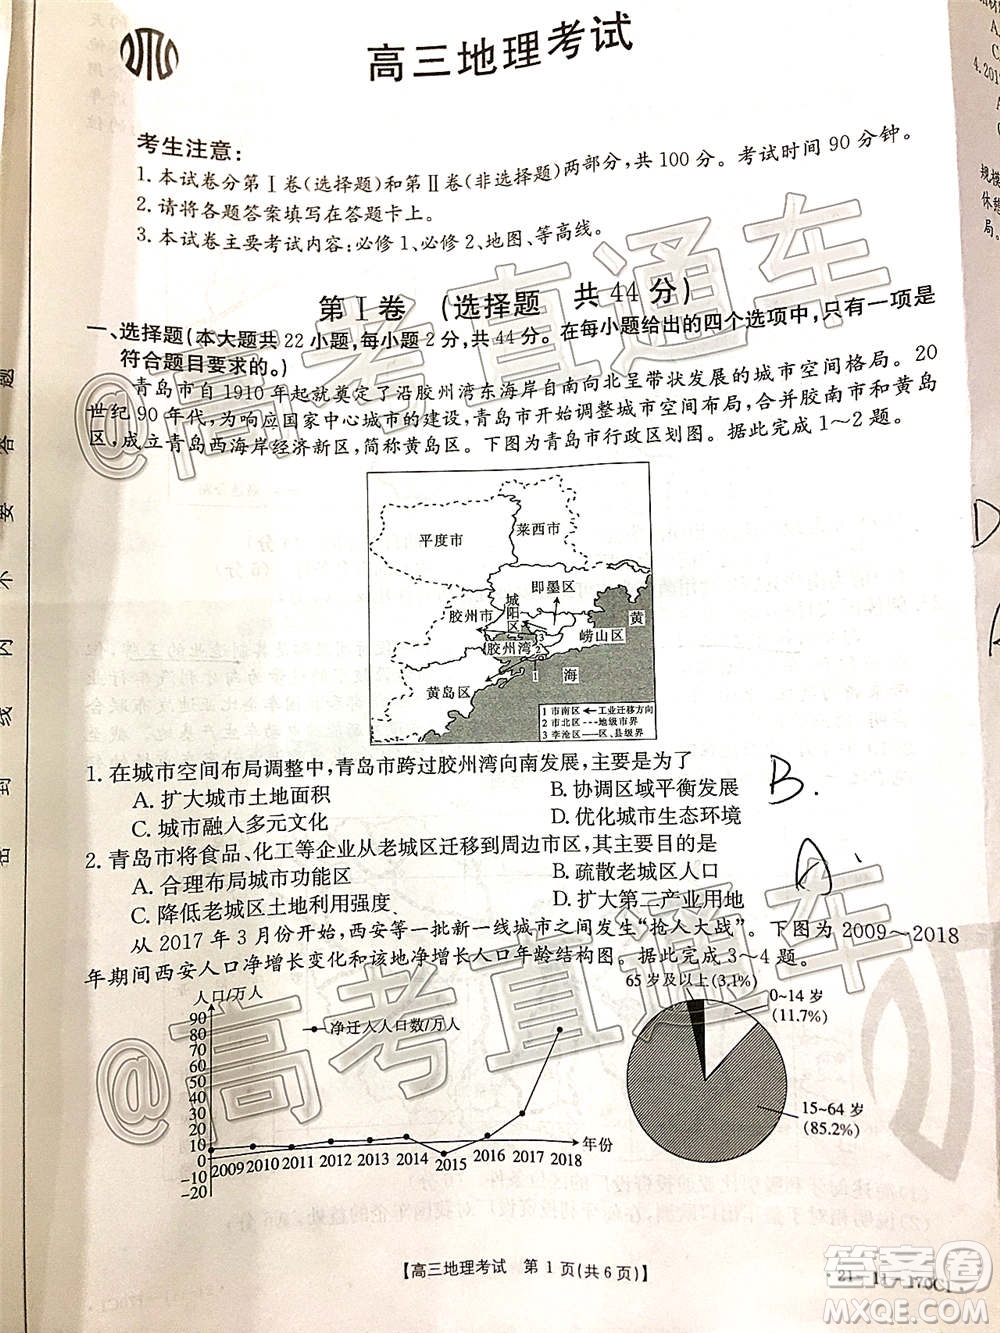 高三地理考试
考生注意:
1. 本试卷分第Ⅰ卷(选择题)和第Ⅱ卷(非选择题)两部分,共 100 分。考试时间 90 分钟。
2. 请将各题答案填写在答题卡上。
3. 本试卷主要考试内容:必修 1、必修 2、地图、等高线。
第Ⅰ卷 (选择题 共 44 分)
一、选择题(本大题共 22 小题,每小题 2 分,共 44 分。在每小题给出的四个选项中,只有一项是
符合题目要求的。)
青岛市自 1910 年起就奠定了沿胶州湾东海岸自南向北呈带状发展的城市空间格局。20
世纪 90 年代,为响应国家中心城市的建设,青岛市开始调整城市空间布局,整合胶南市和黄岛
区,成立青岛西海岸经济新区,简称黄岛区。下图为青岛市行政区划图。据此完成 1～2 题。
平度市
莱西市
即墨区
城阳区
胶州市
黄
胶州湾
崂山区
3
2
1
海
黄岛区
1 市南区 工业迁移方向
2 市北区 地级市界
3 李沧区 区、县级界
1. 在城市空间布局调整中,青岛市跨过胶州湾向南发展,主要是为了
A. 扩大城市土地面积 B. 协调区域平衡发展
C. 城市融入多元文化 D. 优化城市生态环境
B.
2. 青岛市将食品、化工等企业从老城区迁移到周边市区,其主要目的是
A. 合理布局城市功能区 B. 疏散老城区人口
C. 降低老城区土地利用强度 D. 扩大第二产业用地
A
从 2017 年 3 月份开始,西安等一批新一线城市之间发生“抢人大战”。下图为 2009～2018
年期间西安人口净增长变化和该地净增长人口年龄结构图。据此完成 3～4 题。
人口/万人
90
80
70
60
50
40
30
20
10
0
-10
-20
净迁入人口数/万人
年份
2009 2010 2011 2012 2013 2014 2015 2016 2017 2018
65 岁及以上(3.1%)
0~14 岁
(11.7%)
15~64 岁
(85.2%)
【高三地理考试 第 1 页(共 6 页)】
答案圈
MXQE.COM
@高考直通车
@高考直通车